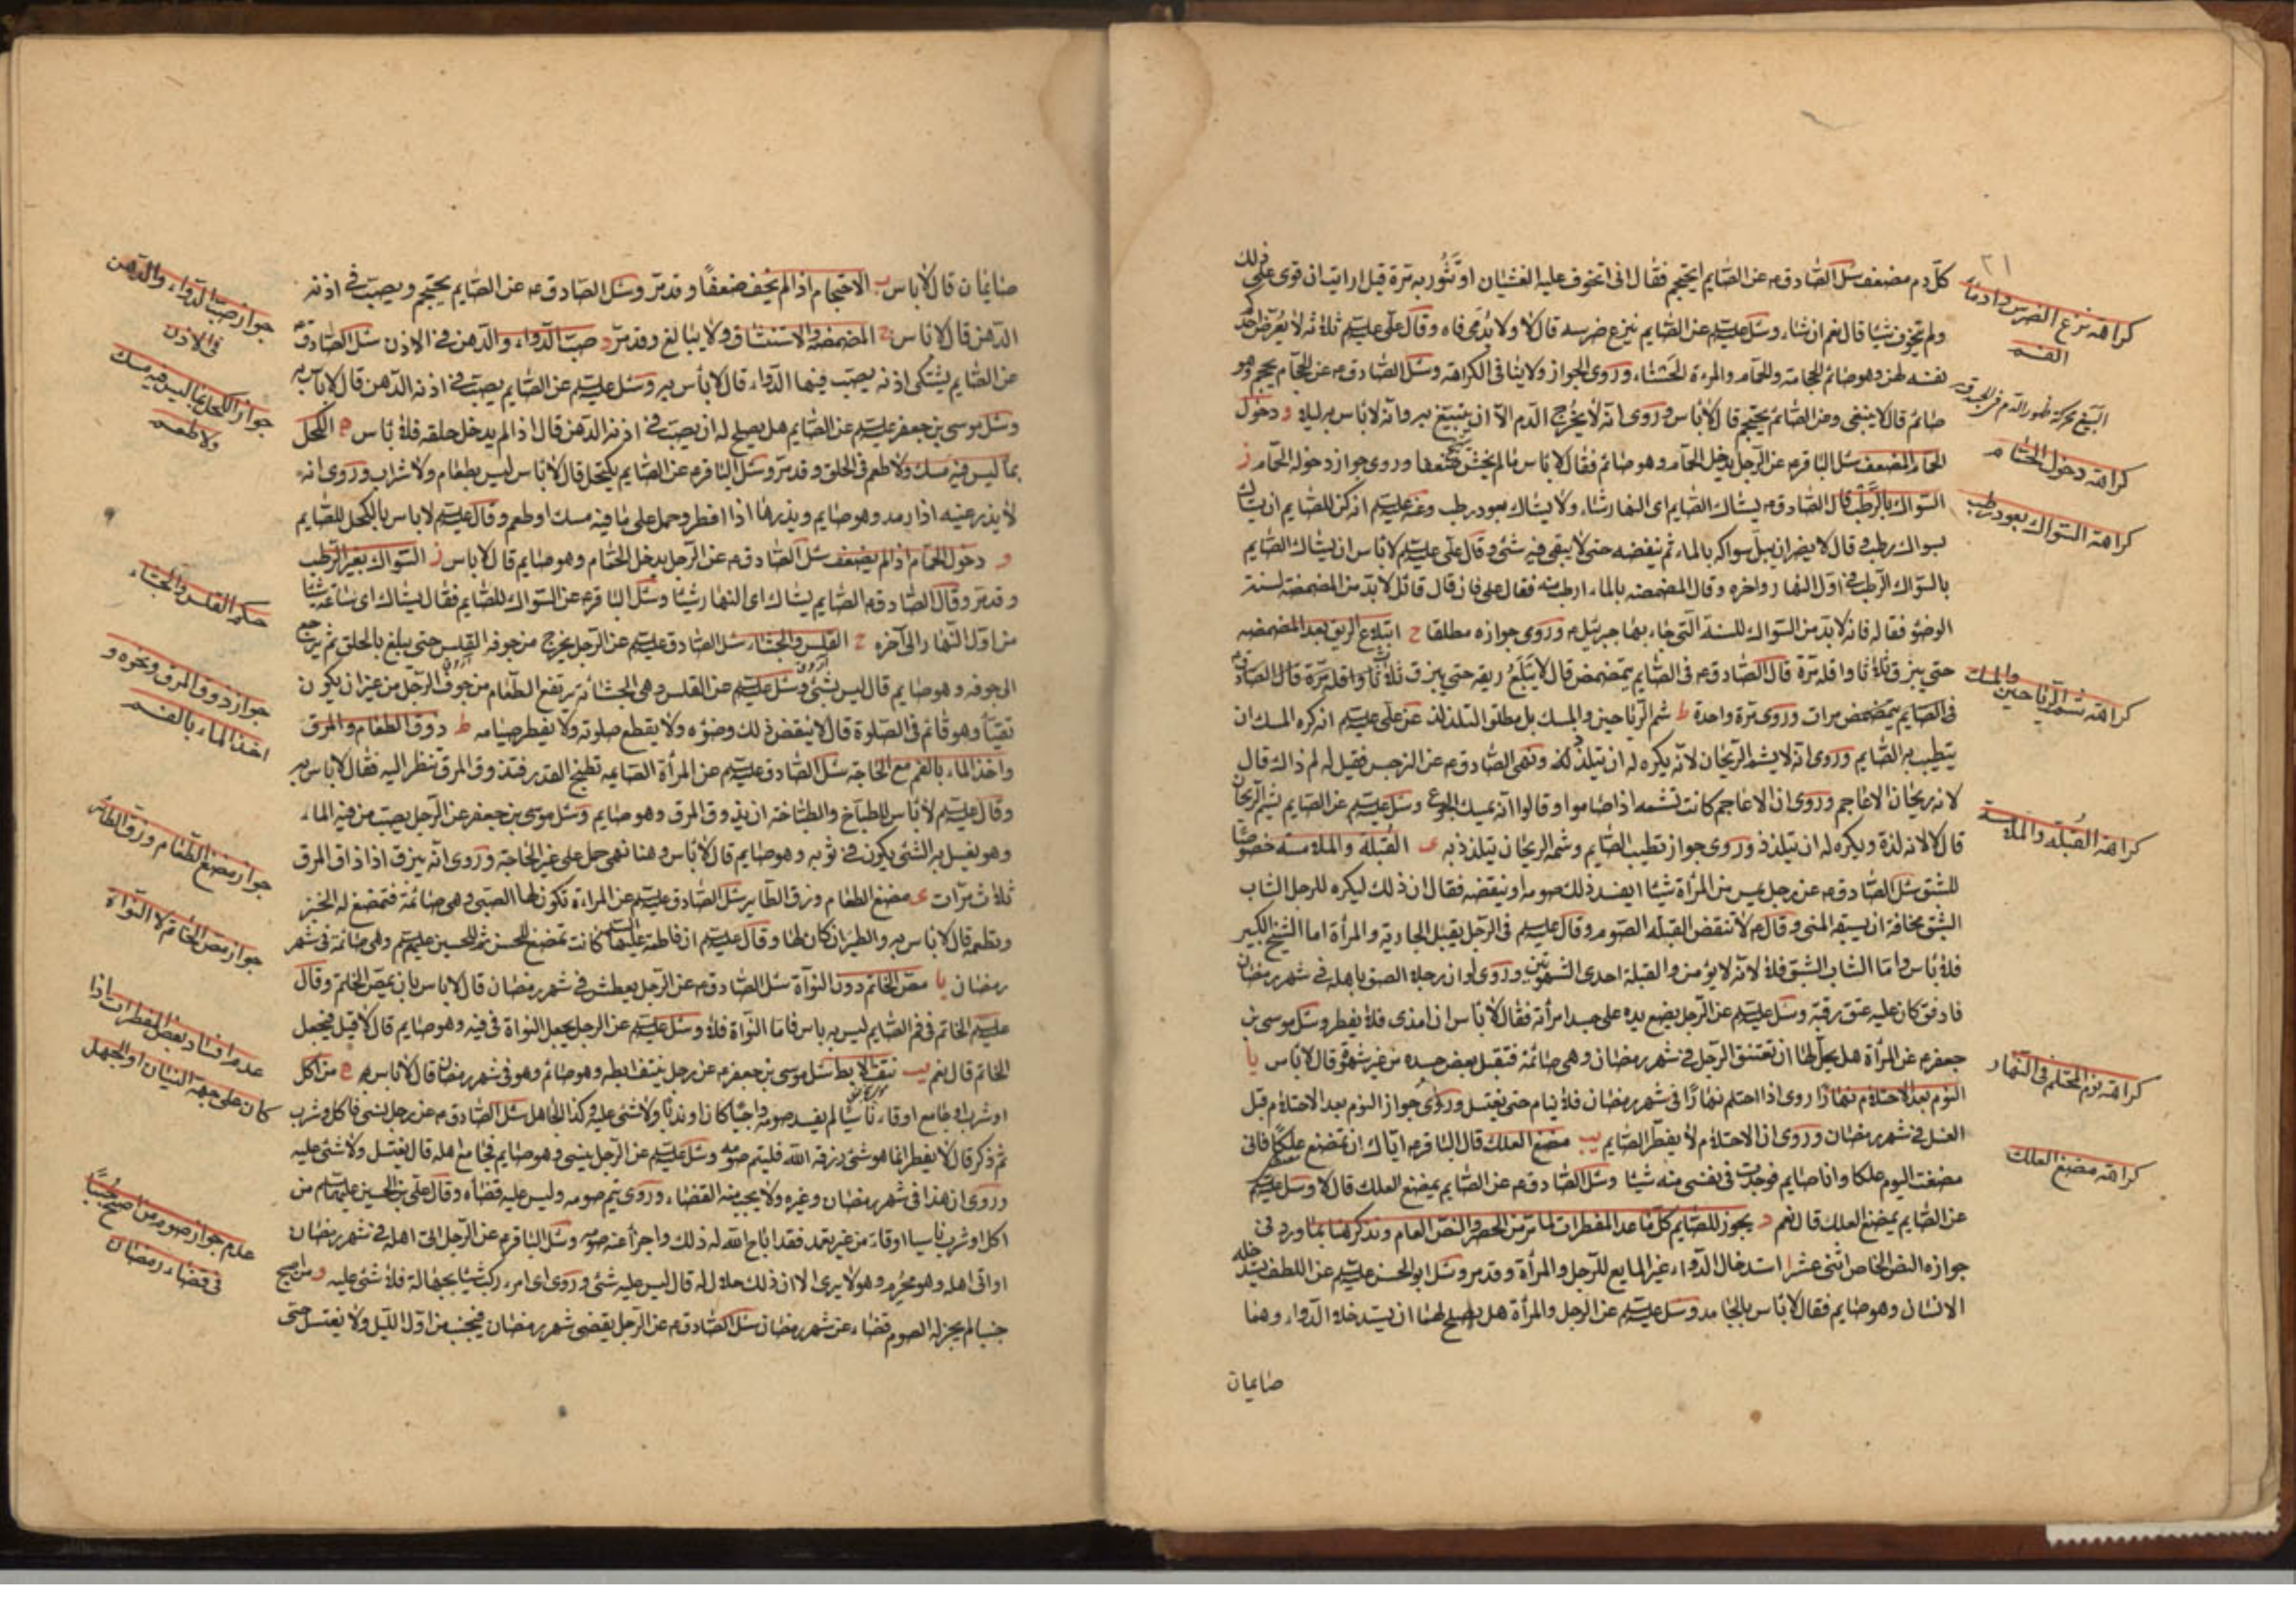 ٢١
كل دم مضعف سئل الصادق م عن الصايم ايحتجم فقال انى اتخوف عليه الغشيان او تثور به مرة قيل ارايت ان قوى على ذلك
ولم يتخوف شيئا قال نعم ان شاء وسئل عليه السلام عن الصايم ينزع ضرسه قال لا ولا يدمى فاه وقال على عليه السلام ثلاثة لا يعرض احدكم
نفسه لهن وهو صائم الحجامة والحمام والمرءة الحسناء وروى الجواز ولا ينافى الكراهة وسئل الصادق م عن الحجام يحجم وهو
صائم قال لا ينبغى وعن الصائم يحتجم قال لا باس وروى انه لا يخرج الدم الا ان يتبيغ به وانه لا باس به ليلا و دخول
الحمام المضعف سئل الباقر م عن الرجل يدخل الحمام وهو صائم فقال لا باس ما لم يخش ضعفا وروى جواز دخوله الحمام ز
السواك بالرطب قال الصادق م يستاك الصايم اى النهار شاء ولا يستاك بعود رطب وعنه عليه السلام انه كره للصايم ان يستاك
بسواك رطب وقال لا يضر ان يبل سواكه بالماء ثم ينفضه حتى لا يبقى فيه شئ وقال على عليه السلام لا باس ان يستاك الصايم
بالسواك الرطب فى اول النهار واخره وقال المضمضه بالماء ارطب منه فقال على فان قال قائل لا بد من المضمضة لسنة
الوضوء فقال له فانه لا بد من السواك للسنة التى جاء بها جبرئيل م وروى جوازه مطلقا ح ابتلاع الريق بعد المضمضه
حتى يبزق ثلاثا واقله مرة قال الصادق م فى الصايم يتمضمض قال لا يبلع ريقه حتى يبزق ثلاثا واقله مرة قال الصادق م
فى الصايم يتمضمض مرات وروى مرة واحدة ط شم الرياحين والمسك بل مطلق التلذذ عن على عليه السلام انه كره المسك ان
يتطيب به الصايم وروى انه لا يشم الريحان لانه يكره له ان يتلذذ ونهى الصادق م عن النرجس فقيل له لم ذاك قال
لانه ريحان الاعاجم وروى ان الاعاجم كانت تشمه اذا صاموا وقالوا انه يمسك الجوع وسئل عليه السلام عن الصايم يشم الريحان
قال لا لانه لذة ويكره له ان يتلذذ وروى جواز تطيب الصايم وشمه الريحان يتلذذ به ى القبلة والملامسة خصوصا
للشبق سئل الصادق م عن رجل يمس من المرأة شيئا ايفسد ذلك صومه او ينقضه فقال ان ذلك ليكره للرجل الشاب
الشبق مخافة ان يسبقه المنى وقال م لا تنقض القبلة الصوم وقال عليه السلام فى الرجل يقبل الجارية والمرأة اما الشيخ الكبير
فلا باس واما الشاب الشبق فلا لانه لا يؤمن والقبلة احدى الشهوتين وروى لو ان رجلا لصق باهله فى شهر رمضان
فادفق كان عليه عتق رقبة وسئل عليه السلام عن الرجل يضع يده على جسد امرأته فقال لا باس ان امذى فلا يفطر وسئل موسى بن
جعفر م عن المرأة هل يحل لها ان تعتنق الرجل فى شهر رمضان وهى صائمة فتقبل بعض جسده من غير شهوة قال لا باس يا
النوم بعد الاحتلام نهارا روى اذا احتلم نهارا فى شهر رمضان فلا ينام حتى يغتسل وروى جواز النوم بعد الاحتلام قبل
الغسل فى شهر رمضان وروى ان الاحتلام لا يفطر الصايم يب مضغ العلك قال الباقر م اياك ان تمضغ علكا فانى
مضغت اليوم علكا وانا صايم فوجدت فى نفسى منه شيئا وسئل الصادق م عن الصايم يمضغ العلك قال لا وسئل عليه السلام
عن الصايم يمضغ العلك قال نعم د يجوز للصايم كل ما عدا المفطرات لما مر من الحصر والنص العام ونذكر هنا مما ورد فى
جوازه النص الخاص اثنى عشر ا استدخال الدواء غير المايع للرجل والمرأة وقد مر وسئل ابو الحسن عليه السلام عن اللطف يستدخله
الانسان وهو صايم فقال لا باس بالجامد وسئل عليه السلام عن الرجل والمرأة هل يصلح لهما ان يستدخلا الدواء وهما
صايمان
كراهة نزع الضرس وادماء
الفم
كراهة دخول الحمام
كراهة السواك بعود رطب
كراهة شم الرياحين والمسك
كراهة القبلة والملامسة
كراهة نوم المحتلم فى النهار
كراهة مضغ العلك
صايمان قال لا باس ب الاحتجام اذا لم يخف ضعفا وقد مر وسئل الصادق م عن الصايم يحتجم ويصب فى اذنه
الدهن قال لا باس ج المضمضه والاستنشاق ولا يبالغ وقد مر د صب الدواء والدهن فى الاذن سئل الصادق م
عن الصايم يشتكى اذنه يصب فيها الدواء قال لا بأس به وسئل عليه السلام عن الصايم يصب فى اذنه الدهن قال لا باس به
وسئل موسى بن جعفر عليه السلام عن الصايم هل يصلح له ان يصب فى اذنه الدهن قال اذا لم يدخل حلقه فلا باس ه الكحل
بما ليس فيه مسك ولا طعم فى الحلق وقد مر وسئل الباقر م عن الصايم يكتحل قال لا باس ليس بطعام ولا شراب وروى انه
لا يذر عينيه اذا رمد وهو صايم ويذرها اذا افطر وحمل على ما فيه مسك او طعم وقال عليه السلام لا باس بالكحل للصايم
و دخول الحمام اذا لم يضعف سئل الصادق م عن الرجل يدخل الحمام وهو صايم قال لا باس ز السواك بغير الرطب
وقد مر وقال الصادق م الصايم يستاك اى النهار شاء وسئل الباقر م عن السواك للصايم فقال يستاك اى ساعة شاء
من اول النهار الى آخره ح القلس والجشاء سئل الصادق عليه السلام عن الرجل يخرج من جوفه القلس حتى يبلغ الحلق ثم يرجع
الى جوفه وهو صايم قال ليس بشئ وسئل عليه السلام عن القلس وهى الجشأة يرتفع الطعام من جوف الرجل من غير ان يكون
تقيأ وهو قائم فى الصلوة قال لا ينقض ذلك وضوءه ولا يقطع صلوته ولا يفطر صيامه ط ذوق الطعام والمرق
واخذ الماء بالفم مع الحاجة سئل الصادق عليه السلام عن المرأة الصايمه تطبخ القدر فتذوق المرق تنظر اليه فقال لا باس به
وقال عليه السلام لا باس للطباخ والطباخة ان يذوق المرق وهو صايم وسئل موسى بن جعفر عن الرجل يصب من فيه الماء
وهو يغسل به الشئ يكون فى ثوبه وهو صايم قال لا باس وهنا نهى حمل على غير الحاجة وروى انه يبزق اذا ذاق المرق
ثلاث مرات ى مضغ الطعام وزق الطاير سئل الصادق عليه السلام عن المراة تكون لها الصبى وهى صائمة فتمضغ له الخبز
وتطعمه قال لا باس به والطير ان كان لها وقال عليه السلام ان فاطمة عليها السلام كانت تمضغ للحسن ثم للحسين عليهم السلام وهى صائمة فى شهر
رمضان يا مص الخاتم دون النواة سئل الصادق م عن الرجل يعطش فى شهر رمضان قال لا باس بان يمص الخاتم وقال
عليه السلام الخاتم فى فم الصايم ليس به باس فاما النواة فلا وسئل عليه السلام عن الرجل يجعل النواة فى فيه وهو صايم قال لا قيل فيجعل
الخاتم قال نعم يب نتف الابط سئل موسى بن جعفر م عن رجل ينتف ابطه وهو صائم وهو فى شهر رمضان قال لا باس ه من اكل
او شرب او جامع او قاء ناسيا لم يفسد صومه واجبا كان او ندبا ولا شئ عليه وكذا الجاهل سئل الصادق م عن رجل نسى فاكل وشرب
ثم ذكر قال لا يفطر انما هو شئ رزقه الله فليتم صومه وسئل عليه السلام عن الرجل ينسى وهو صايم فجامع اهله قال يغتسل ولا شئ عليه
وروى ان هذا فى شهر رمضان وغيره ولا يجب منه القضاء وروى يتم صومه وليس عليه قضاؤه وقال على بن الحسين عليهما السلام من
اكل او شرب ناسيا او قاء من غير تعمد فقد اباح الله له ذلك واجزأ عنه صومه وسئل الباقر م عن الرجل اتى اهله فى شهر رمضان
او اتى اهله وهو محرم وهو لا يرى الا ان ذلك حلال له قال ليس عليه شئ وروى اى امرء ركب شيئا بجهالة فلا شئ عليه و من اصبح
جنبا لم يجز له الصوم قضاء عن شهر رمضان سئل الصادق م عن الرجل يقضى شهر رمضان فيجنب من اول الليل ولا يغتسل حتى
جواز صب الدواء والدهن
فى الاذن
جواز الكحل بما ليس فيه مسك
ولا طعم
حكم القلس والجشاء
جواز ذوق المرق ونحوه و
اخذ الماء بالفم
جواز مضغ الطعام وزق الطائر
جواز مص الخاتم لا النواة
عدم افساد بعض المفطرات اذا
كان على جهة النسيان او الجهل
عدم جواز صوم من اصبح جنبا
فى قضاء رمضان